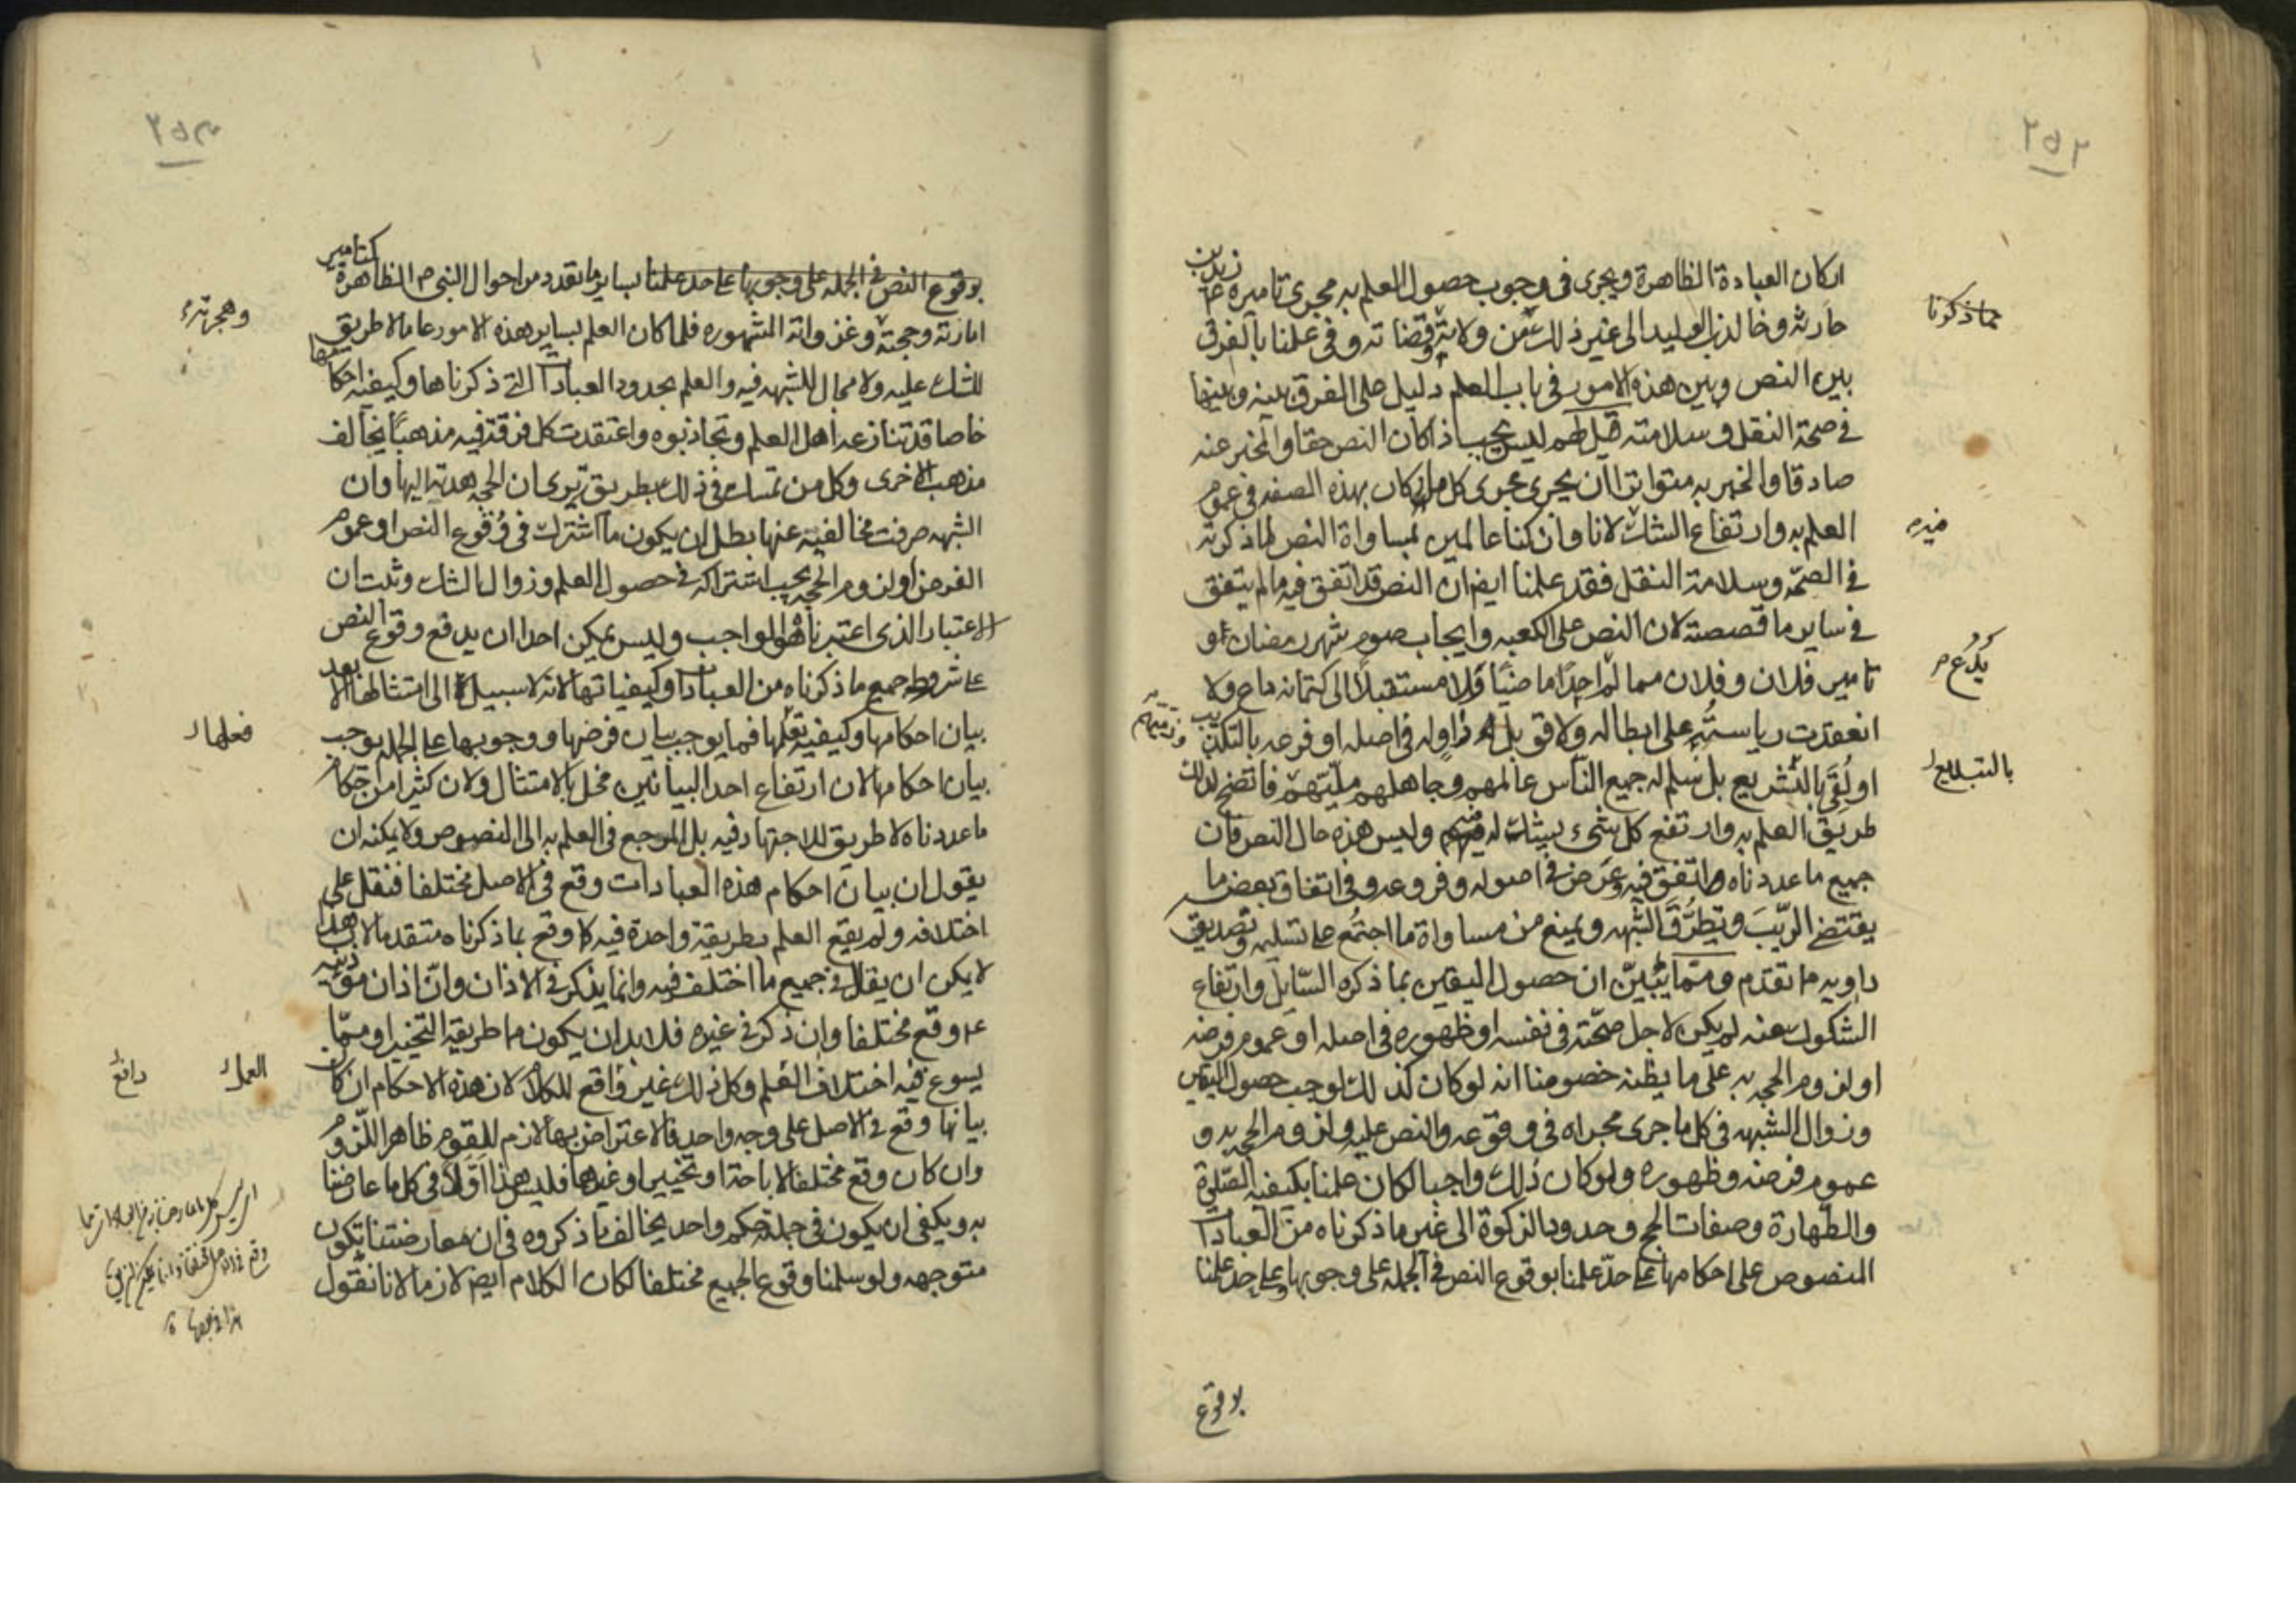 ٢٥٢
اركان العبادة الظاهرة ويجرى فى وجوب حصول العلم به مجرى تاميره زيد بن
حارثه وخالد بن الوليد الى غير ذلك من ولاته وقضاته وفى علمنا بالفرق
بين النص وبين هذه الامور فى باب العلم دليل على الفرق بينه وبينها
فى صحة النقل وسلامته قيل لهم ليس يجب اذا كان النص حقا والخبر عنه
صادقا والخبر به متواترا ان يجرى مجرى كل ما كان بهذه الصفه فى عموم
العلم به وارتفاع الشك لانا وان كنا عالمين بمساواة النص لما ذكرته
فى الصحّه وسلامة النقل فقد علمنا ايض ان النص قد اتفق فيه مالم يتفق
فى ساير ما قصصته لان النص على الكعبه وايجاب صوم شهر رمضان او
تامير فلان وفلان مما لم احدًا ماضيًا ولا مستقبلًا الى كتمانه داع ولا
انعقدت رياستُه على ابطاله ولا قوبل راويه فى اصله او فرعه بالتكذيب
او لُقّى بالتشريع بل سلم له جميع الناس عالمهم وجاهلهم ملّيتهم فاتضح لذلك
طريق العلم به وارتفع كل شىء يشك له فيهم وليس هذه حال النص فان
جميع ما عددناه اتفق فيه وعَرَض فى اصوله وفروعه وفى اتفاق بعض ما
يقتضى الرّيبَ وتطرُّق الشبهه ويمنع من مساواة ما اجتُمع على تسليمه وتصديق
راويه ما تقدم وممّا يبيّن ان حصول اليقين بما ذكره السّايل وارتفاع
الشكوك عنه لم يكن لاجل صحّته فى نفسه او ظهوره فى اصله او عموم فرضه
او لزوم الحجه به على ما يظنه خصومنا انه لو كان كذلك لوجب حصول اليقين
وزوال الشبهه فى كل ما جرى مجراه فى وقوعه والنص عليه ولزوم الحجه به و
عموم فرضه وظهوره ولو كان ذلك واجبا لكان علمنا بكيفيه الصّلوة
والطّهارة وصفات الحج وحدود الزكوة الى غير ما ذكرناه من العبادات
المنصوص على احكامها على حدّ علمنا بوقوع النص فى الجمله على وجوبها وعلى حد علمنا
بوقوع
مما ذكرنا
غيره
يَدْعُ م
بالتبليغ
٢٥٣
بوقوع النص فى الجمله على وجوبها على حد علمنا بساير ما تقدد من احوال النبى م الظاهرة كتامير
امارته وحجته وغزواته المشهوره فلما كان العلم بساير هذه الامور عاما لا طريق
للشك عليه ولا مجال للشبهه فيه والعلم بحدود العبادات التى ذكرناها وكيفيه احكامها
خاصا قد تنازعه اهل العلم وتجاذبوه واعتقدت كل فرقة فيه مذهبًا يخالف
مذهب الاخرى وكل من تمسك فى ذلك بطريق يرى ان الحجه هدته اليها وان
الشبهه صرفت مخالفيه عنها بطل ان يكون ما اشترك فى وُقوع النص او عموم
الفرض او لزوم الحجه يجب اشتراكه فى حصول العلم وزوال الشك وثبت ان
الاعتبار الذى اعتبرناه هو الواجب وليس يمكن احدا ان يدفع وقوع النص
على شروط جميع ما ذكرناه من العبادات وكيفياتها لانه لا سبيل الى امتثالها الا بعد
بيان احكامها وكيفيه فعلها فما يوجب بيان فرضها ووجوبها على الجمله يوجب
بيان احكامها لان ارتفاع احد البيانين مخل بالامتثال ولان كثيرا من احكام
ما عددناه لا طريق للاجتهاد فيه بل المرجع فى العلم به الى النصوص ولا يمكنه ان
يقول ان بيان احكام هذه العبادات وقع فى الاصل مختلفا فنقل على
اختلافه ولم يقع العلم بطريقة واحدة فيه كما وقع بما ذكرناه متقدما لان هذا
لا يمكن ان يقال فى جميع ما اختلف فيه وانما يذكر فى الاذان وانّ اذان مؤذنيه
عم وقع مختلفا وان ذكر فى غيره فلا بد ان يكون ما طريقه التخيير او ممّا
يسوع فيه اختلاف العلم وكل ذلك غير واقع للكلام لان هذه الاحكام ان كان
بيانها وقع فى الاصل على وجه واحد فالاعتراض بها لازم للقوم ظاهر اللزوم
وان كان وقع مختلفا لاباحة او تخيير او غيرها فليس هذا اوّلا فى كل ما عارضنا
به ويكفى ان يكون فى جملته حكم واحد يخالف ما ذكروه فى ان معارضتنا تكون
متوجهه ولو سلمنا وقوع الجميع مختلفا لكان الكلام ايض لازما لانا نقول
وهجرته
فعلها
العمل
دافع